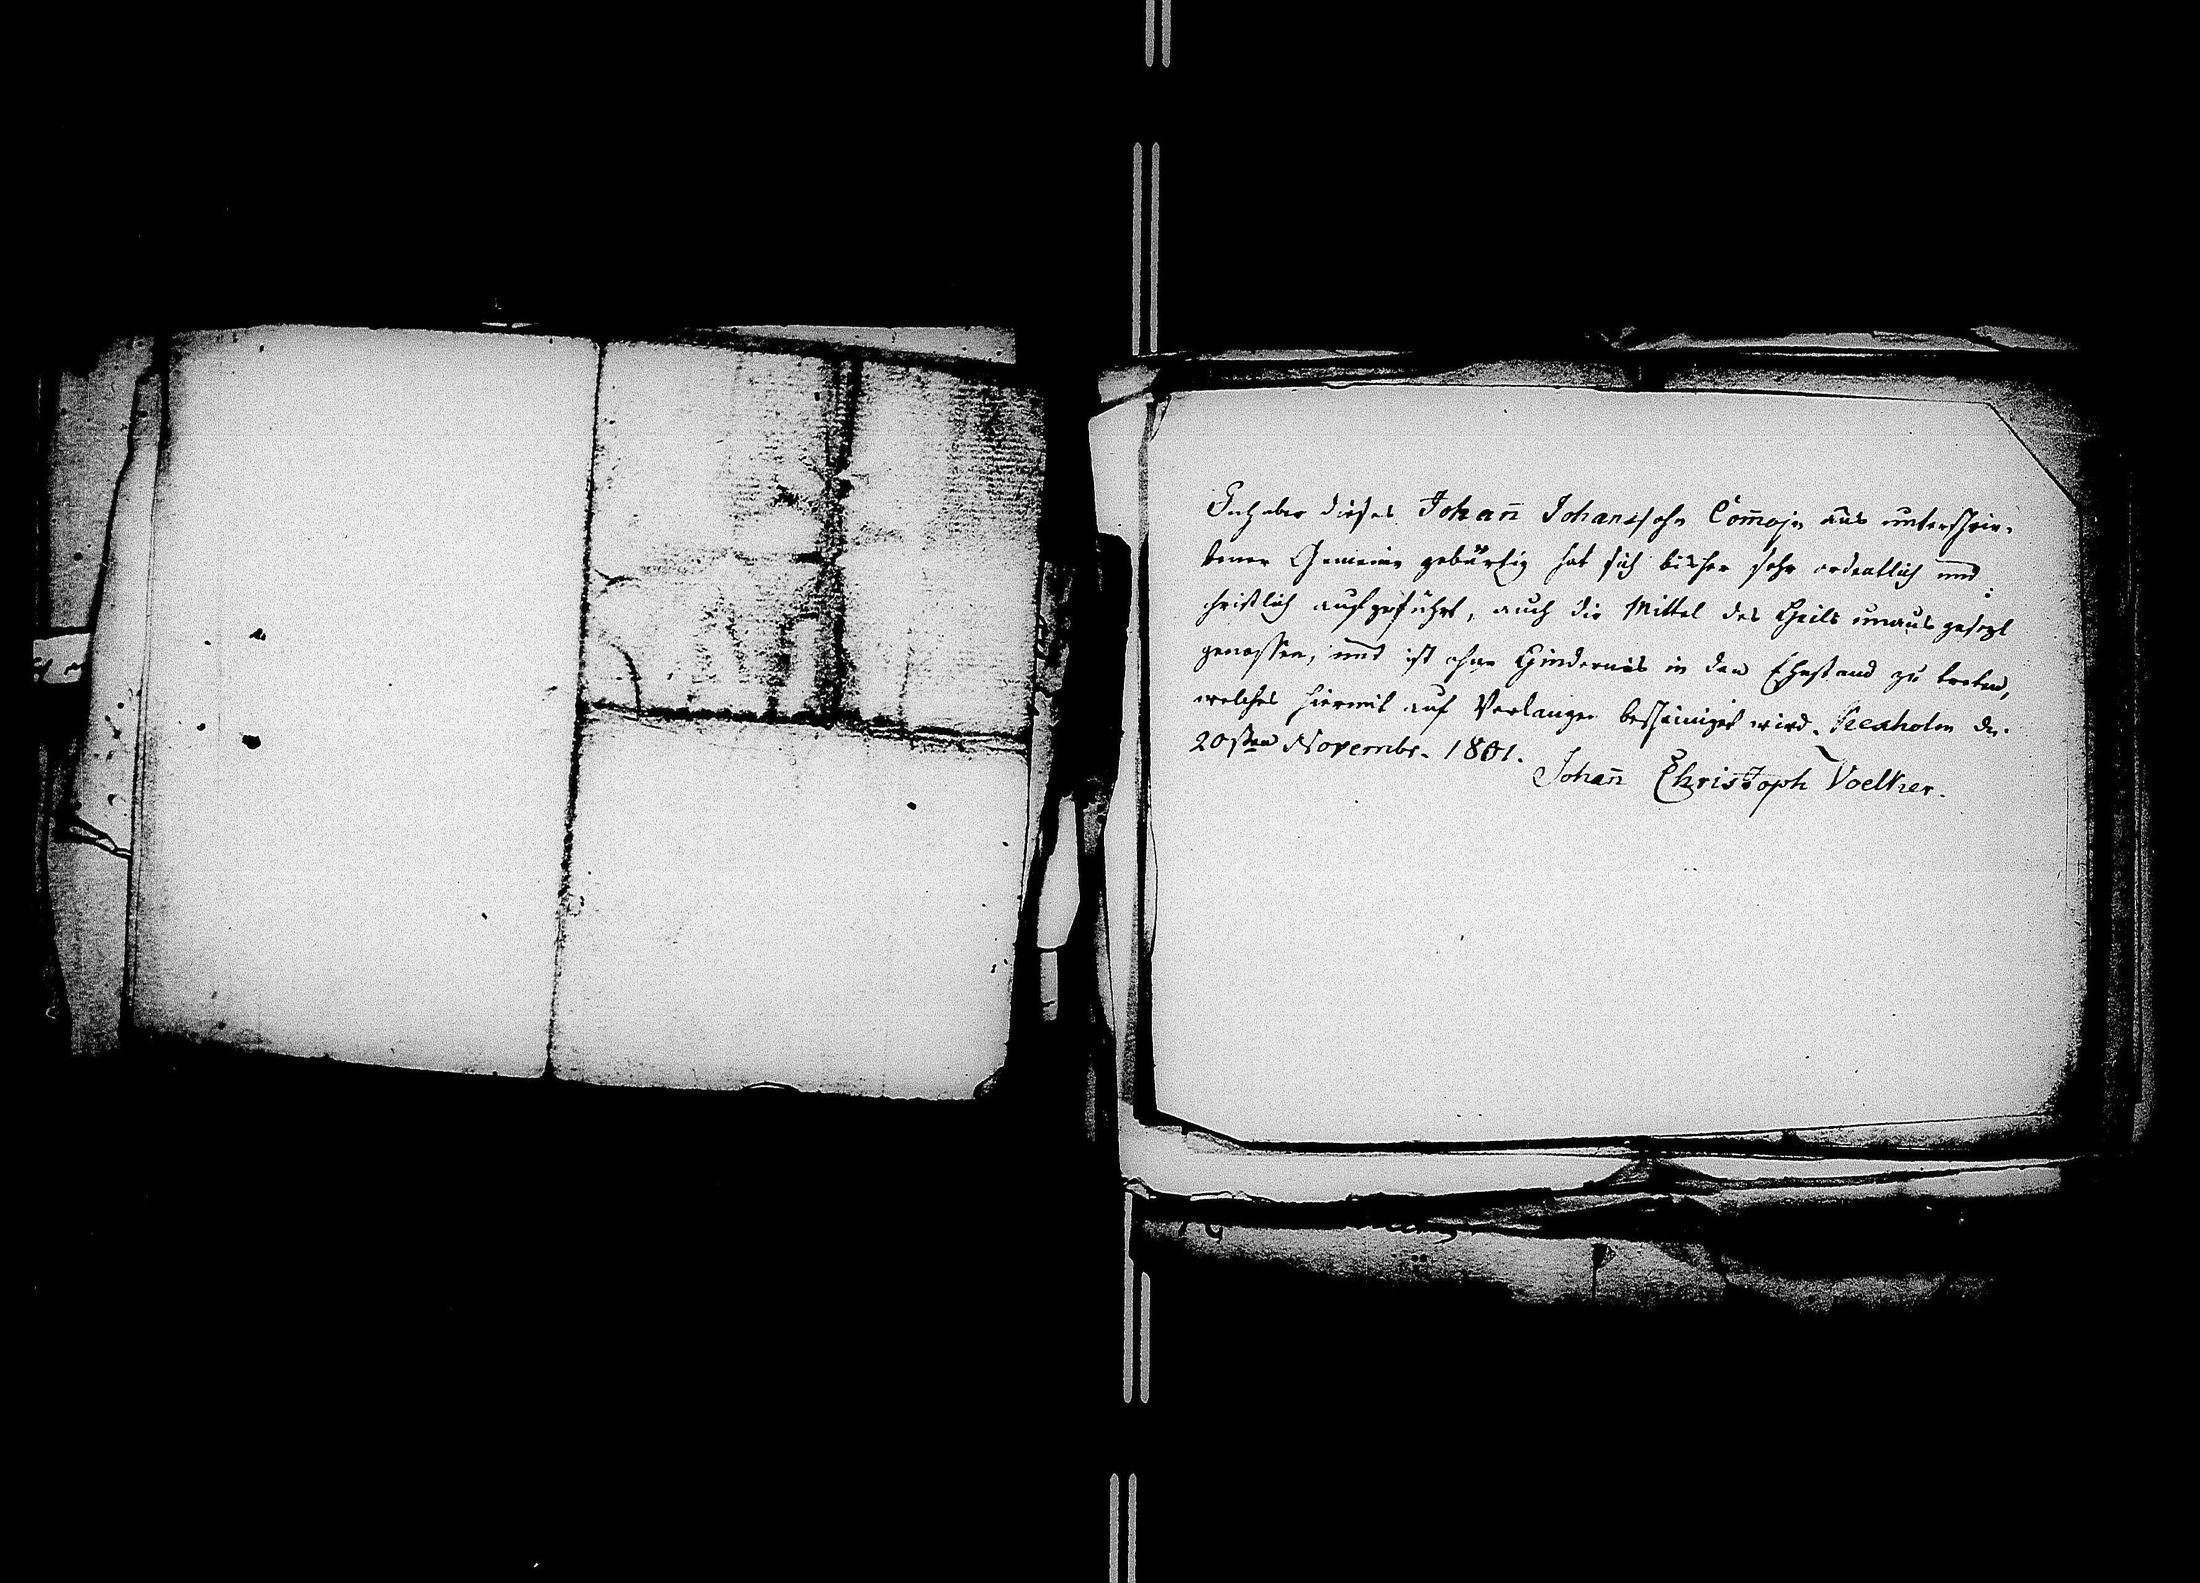 Inhaber dieses Johan̄ Johanssohn Com̄oje aus unterschrie-
bener Gemeine gebürtig hat sich bisher sehr ordentlich und
christlich aufgeführt, auch die Mittel des Heils unausgesezt
genossen, und ist ohne Hindernis in den Ehestand zu treten,
welches hiermit auf Verlangen bescheiniget wird. Keexholm den
20sten Novembr. 1801.
Johan̄ Christoph Voelker.